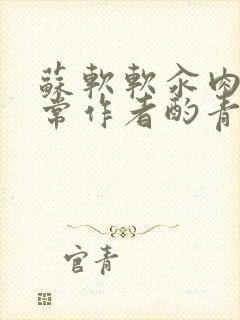 蘇軟軟汆肉
常作者酌青
官青